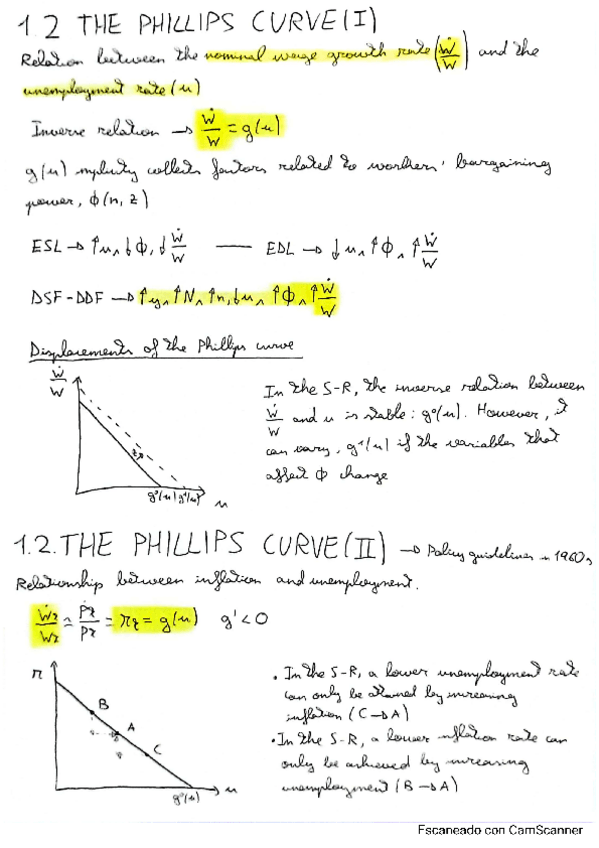 1.2 THE PHILLIPS CURVE (I)
Relation between the nominal wage growth rate (Ẇ/W) and the
unemployment rate (u)
Inverse relation → Ẇ/W = g(u)
g(u) implicitly collects factors related to workers' bargaining
power, ϕ(n, z)
ESL → ↑u, ↓ϕ, ↓Ẇ/W — EDL → ↓u, ↑ϕ, ↑Ẇ/W
DSF-DDF → ↑y, ↑N, ↑n, ↓u, ↑ϕ, ↑Ẇ/W
Displacements of the Phillips curve
Ẇ/W
In the S-R, the inverse relation between
Ẇ/W and u is stable: g⁰(u). However, it
can vary, g¹(u) if the variables that
affect ϕ change
g⁰(u) g¹(u)
u
1.2. THE PHILLIPS CURVE (II) → Policy guidelines in 1960s
Relationship between inflation and unemployment.
Ẇt/Wt ≃ Ṗt/Pt = πt = g(u) g' < 0
π
B
A
C
g⁰(u)
u
• In the S-R, a lower unemployment rate
can only be attained by increasing
inflation (C→A)
• In the S-R, a lower inflation rate can
only be achieved by increasing
unemployment (B→A)
Escaneado con CamScanner